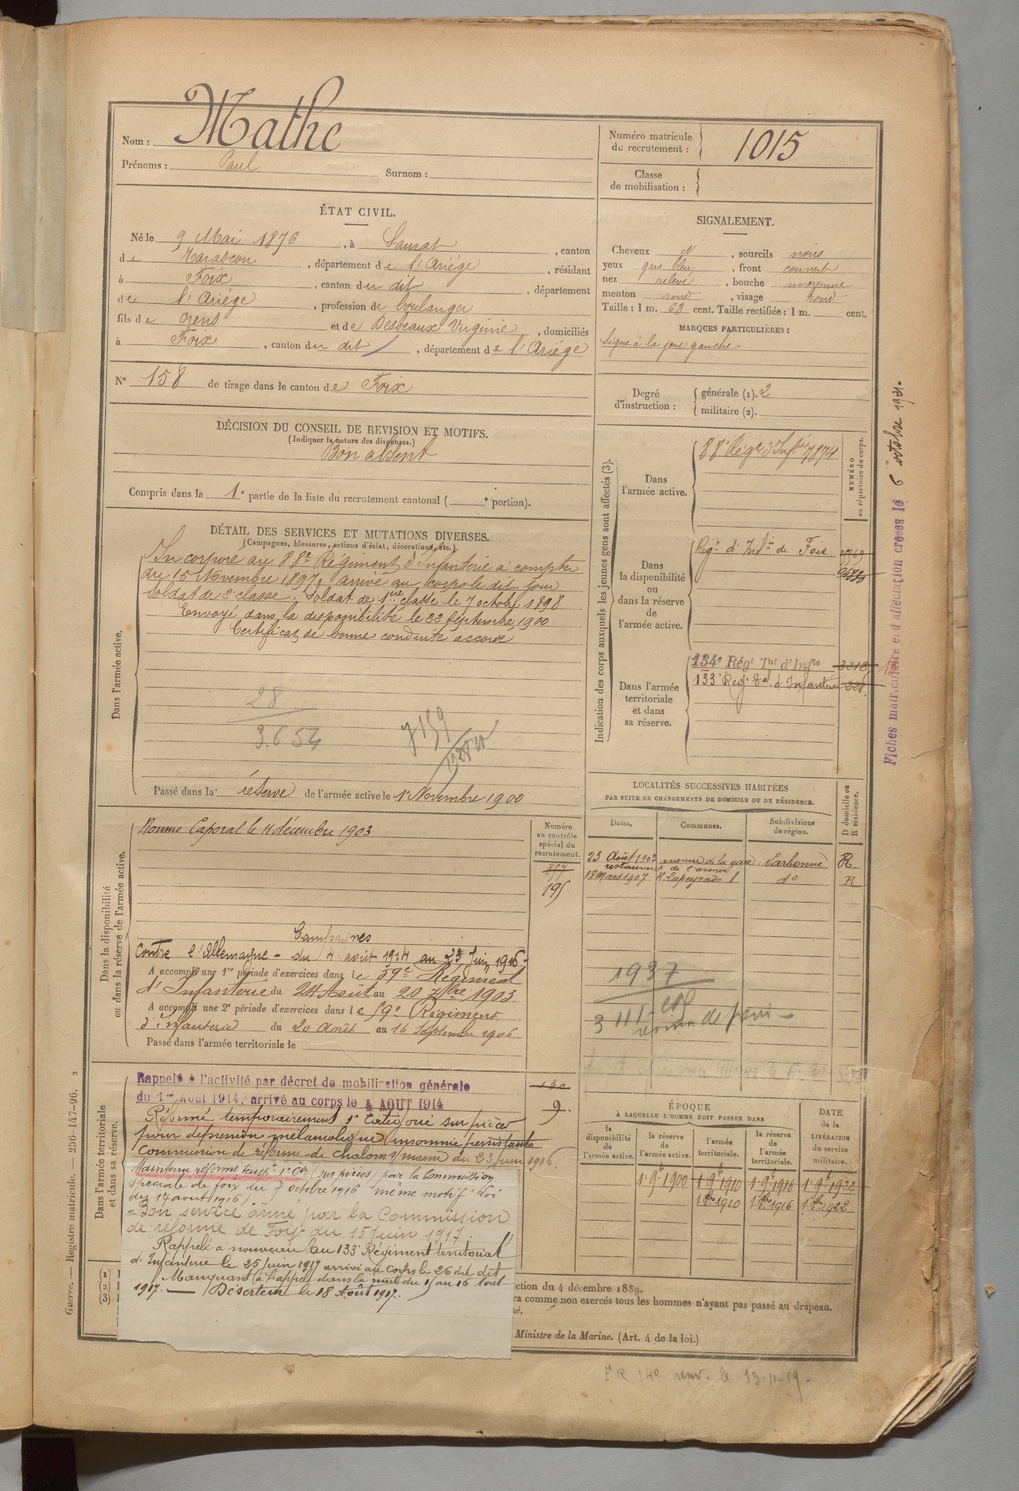 Nom : Mathe
Prénoms : Paul Surnom :
Numéro matricule du recrutement : 1015
Classe de mobilisation :
ÉTAT CIVIL.
Né le 9 Mai 1876, à Saurat, canton
de Tarascon, département de l'Ariége, résidant
à Foix, canton du dit, département
de l'Ariége, profession de boulanger
fils de Orens et de Desbeaux Virginie, domiciliés
à Foix, canton du dit, département de l'Ariége
N° 158 de tirage dans le canton de Foix
SIGNALEMENT.
Cheveux N, sourcils noirs
yeux gris bleu, front couvert
nez relevé, bouche moyenne
menton rond, visage rond
Taille : 1 m. 63 cent. Taille rectifiée : 1 m. cent.
MARQUES PARTICULIÈRES :
signe à la joue gauche
Degré d'instruction : générale (1). 2
militaire (2).
DÉCISION DU CONSEIL DE REVISION ET MOTIFS.
(Indiquer la nature des dispenses.)
Bon absent
Compris dans la 1e partie de la liste du recrutement cantonal ( e portion).
DÉTAIL DES SERVICES ET MUTATIONS DIVERSES.
(Campagnes, blessures, actions d'éclat, décorations, etc.)
Dans l'armée active.
Incorporé au 88e Régiment d'infanterie à compter
du 15 Novembre 1897, arrivé au corps le dit jour
soldat de 2e classe, Soldat de 1ere classe le 7 octobre 1898
Envoyé dans la disponibilité le 22 Septembre 1900
Certificat de bonne conduite accordé
28
3.654
7159
Passé dans la réserve de l'armée active le 1 Novembre 1900
Indication des corps auxquels les jeunes gens sont affectés (3).
Dans l'armée active. 88e Régt d'Infie 7874
NUMÉRO au répertoire du corps.
Dans la disponibilité ou dans la réserve de l'armée active. Régt d'Infie de Foix
Dans l'armée territoriale et dans sa réserve. 134e Régt Tal d'Infie 3218
133e Régt Tal d'Infanterie 226
Fiches matriculaire et d'affectation créées le 6 octobre 1931.
LOCALITÉS SUCCESSIVES HABITÉES
PAR SUITE DE CHANGEMENTS DE DOMICILE OU DE RÉSIDENCE.
D domicile ou R résidence.
Dates. Communes. Subdivisions de région.
23 Août 1903 avenue de la gare Narbonne R
restaurant de l'avenir
18 Mars 1907 R. Lapeyrade 1 do R
1937
Dans la disponibilité ou dans la réserve de l'armée active.
Nommé Caporal le 11 décembre 1903
Numéro au contrôle spécial du recrutement.
357
195
Campagnes
Contre l'Allemagne - du 4 août 1914 au 23 Juin 1916 -
A accompli une 1re période d'exercices dans le 59e Régiment
d'Infanterie du 24 Août au 20 7bre 1903
A accompli une 2e période d'exercices dans le 59e Régiment
d'infanterie du 20 Août au 16 Septembre 1906
Passé dans l'armée territoriale le
Dans l'armée territoriale et dans sa réserve.
Rappelé à l'activité par décret de mobilisation générale
du 1er Août 1914, arrivé au corps le 4 AOUT 1914
130
9.
Réformé temporairement 1e Catégorie sur pièces
pour dépression mélancolique, insomnie persistante
Commission de réforme de Chalons s/marne du 23 juin 1916.
Maintenu réformé temp. 1e Cie (sur pièces) par la Commission
spéciale de foix du 7 octobre 1916 "même motif" Loi
du 17 août 1916
= Bon service armé par la Commission
de réforme de Foix du 15 Juin 1917.
Rappelé à nouveau au 133e Régiment territorial
d'Infanterie le 25 juin 1917 arrivé au corps le 26 du dit
Manquant à l'appel dans la nuit du 15 au 16 Août
1917. — Déserteur le 18 Août 1917.
ÉPOQUE
À LAQUELLE L'HOMME DOIT PASSER DANS
DATE de la LIBÉRATION DU SERVICE militaire.
la disponibilité de l'armée active. la réserve de l'armée active. l'armée territoriale. la réserve de l'armée territoriale.
1 9e 1900 1 9e 1910 1 9e 1916 1 9e 1922
1 8bre 1910 1 8bre 1916 1 8bre 1922
(1)
(2)
(3)
ction du 4 décembre 1889.
ra comme non exercés tous les hommes n'ayant pas passé au drapeau.
Ministre de la Marine. (Art. 4 de la loi.)
Guerre. — Registre matricule. — 256-147-96. 2
renv. le 13-11-19-